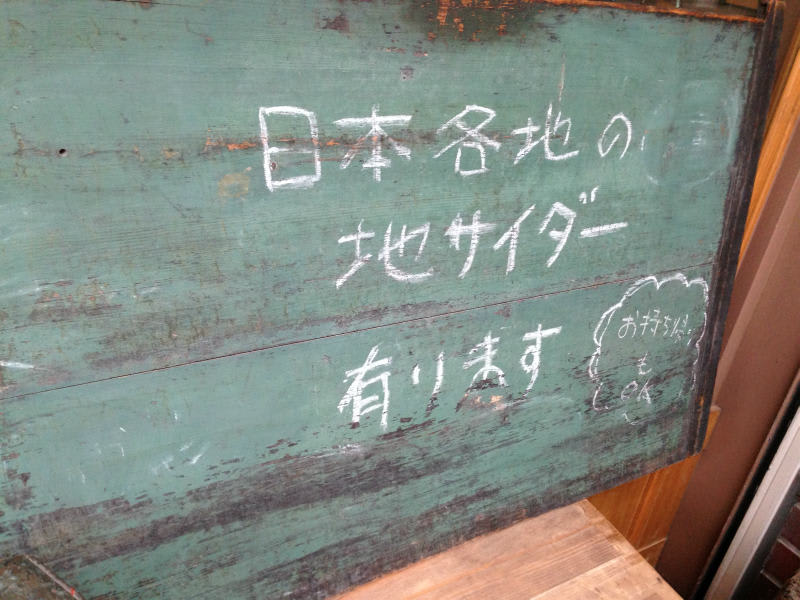 日本各地の
地サイダー
有ります
お持ち帰り
も
OK